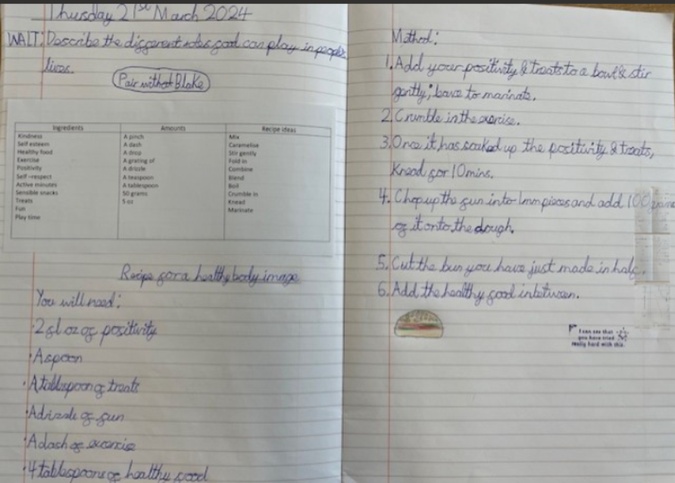 Thursday 21st March 2024
WALT: Describe the different roles food can play in people
lives.
Pair without Blake
Ingredients Amounts Recipe ideas
Kindness A pinch Mix
Self esteem A dash Caramelise
Healthy food A drop Stir gently
Exercise A grating of Fold in
Positivity A drizzle Combine
Self-respect A teaspoon Blend
Active minutes A tablespoon Boil
Sensible snacks 50 grams Crumble in
Treats 5 oz Knead
Fun Marinate
Play time
Recipe for a healthy body image
You will need:
· 2 fl oz of positivity
· A spoon
· A tablespoon of treats
· A drizzle of fun
· A dash of exercise
· 4 tablespoons of healthy food
Method:
1. Add your positivity & treats to a bowl & stir
gently; leave to marinate.
2. Crumble in the exercise.
3. Once it has soaked up the positivity & treats,
Knead for 10 mins.
4. Chop up the fun into 1mm pieces and add 100
of it onto the dough.
5. Cut the bun you have just made in half.
6. Add the healthy food inbetween.
I can see that
you have tried
really hard with this.